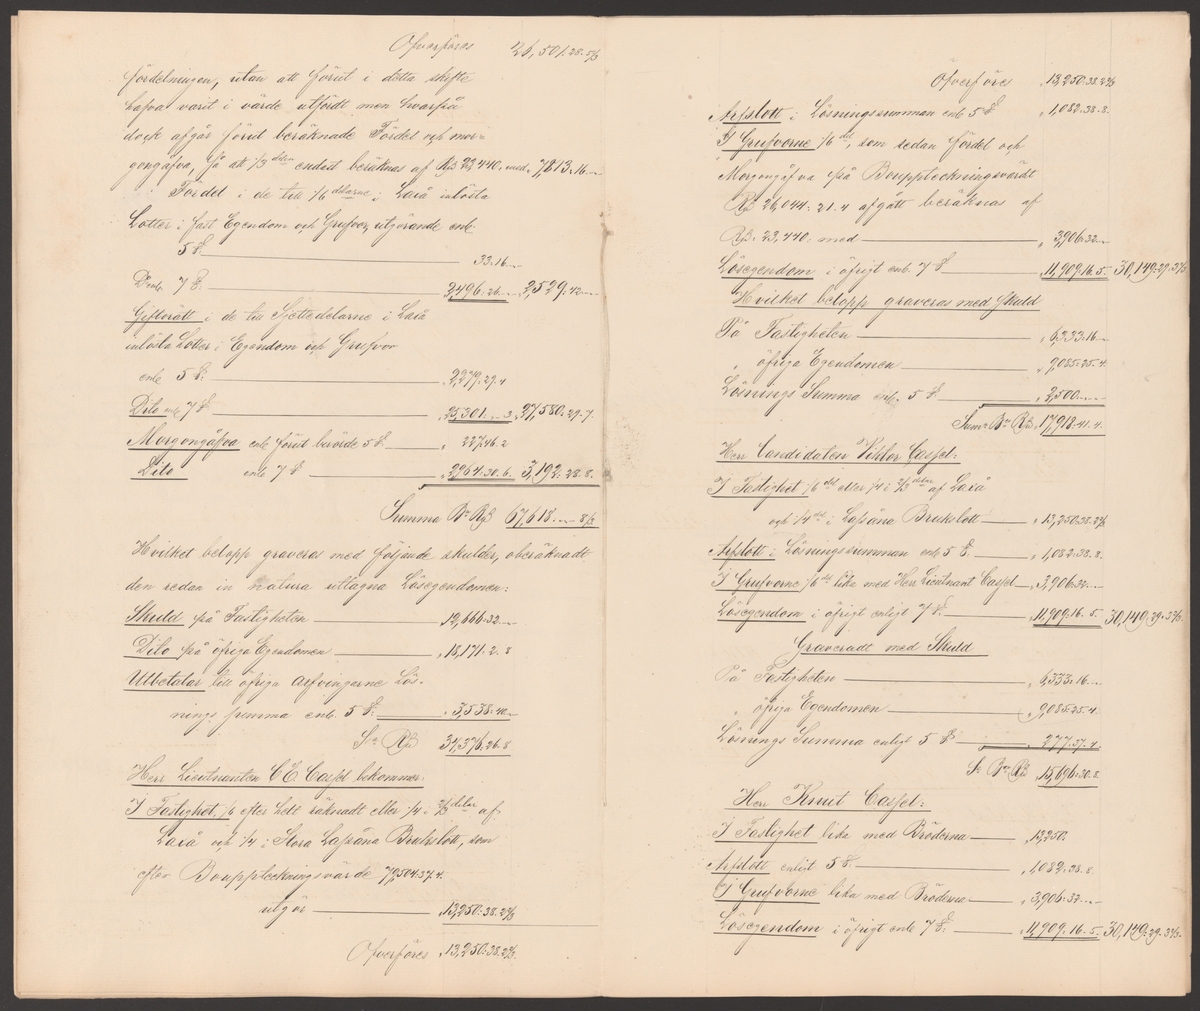 Öfverföres 26,501.28.5⅓
fördelningen, utan att förut i detta skifte
hafva varit i värde utfördt men hvarpå
dock afgår förut beräknade Fördel och mor-
gongåfva, så att ⅓ delen endast beräknas af RB 23,440. med „ 7,813.16.—
Fördel i de till 1/6 delarne i Laxå inlösta
Lotter i fast Egendom och Grufvor, utgörande enl.
5 §. 33.16.—
D:o enl. 7 §. 2,496.26.— 2,529.42.—
Giftorätt i de till Sjettedelarne i Laxå
inlösta Lotter i Egendom och Grufvor
enl. 5 §. „ 2,279.29.4
Dito enl. 7 §. „ 25,301.—.3. 27,580.29.7.
Morgongåfva enl. förut berörde 5 §. „ 227.46.2
Dito enl. 7 § „ 2964.30.6. 3,192.28.8.
Summa B:co RB 67,618.—.8⅓
Hvilket belopp graveras med följande skulder, oberäknadt
den redan in natura uttagna Lösegendomen:
Skuld på Fastigheten „ 12,666.32.—
Dito på öfriga Egendomen „ 18,171.2.8
Utbetalar till öfriga arfvingarne Lös-
nings summa enl. 5 §. „ 3,538.40.—
S:a RB 34,376.26.8
Herr Lieutnanten C E Cassel bekommer:
I Fastighet, 1/6 efter helt räknadt eller 1/4 i 2/3 delar af
Laxå och 1/4 i Stora Lassåna Brukslott, som
efter Bouppteckningsvärde 79,504.37.4.
utgör „ 13,250.38.2⅔
Öfverföres „ 13,250.38.2⅔.
Öfverföres „ 13,250.38.2⅔
Arfslott i Lösningssumman enl. 5 § „ 1,082.38.8.
I Grufvorne 1/6 del, som sedan fördel och
Morgongåfva på Bouppteckningsvärdt
RB 26,044.21.4 afgått beräknas af
RB. 23,440. med „ 3,906.32.—
Lösegendom i öfrigt enl. 7 § „ 11,909.16.5. 30,149.29.3⅔
Hvilket belopp graveras med Skuld
På Fastigheten „ 6,333.16.—
„ öfriga Egendomen „ 9,085.25.4.
Lösnings Summa enl. 5 §. „ 2,500.—.—
Sum:a B:co RB „ 17,918.41.4.
Herr Candidaten Viktor Cassel:
I Fastighet 1/6 del eller 1/4 i 2/3 delar af Laxå
och 1/4 del i Lassåna Brukslott „ 13,250.38.2⅔
Arfslott i Lösningssumman enl. 5 §. „ 1,082.38.8.
I Grufvorne 1/6 del lika med Herr Lieutnant Cassel „ 3,906.32.—
Lösegendom i öfrigt enligt 7 §. „ 11,909.16.5. 30,149.29.3⅔.
Graveradt med Skuld
På Fastigheten „ 6,333.16.—
„ öfriga Egendomen „ 9,085.25.4.
Lösnings Summa enligt 5 § „ 277.37.4.
S:a B:co RB „ 15,696.30.8.
Herr Knut Cassel:
I Fastighet lika med Bröderna „ 13,250.
Arfslott enligt 5 §. „ 1,082.38.8.
I Grufvorne lika med Bröderna „ 3,906.32.—
Lösegendom i öfrigt enl. 7 §. „ 11,909.16.5. 30,149.29.3⅔.